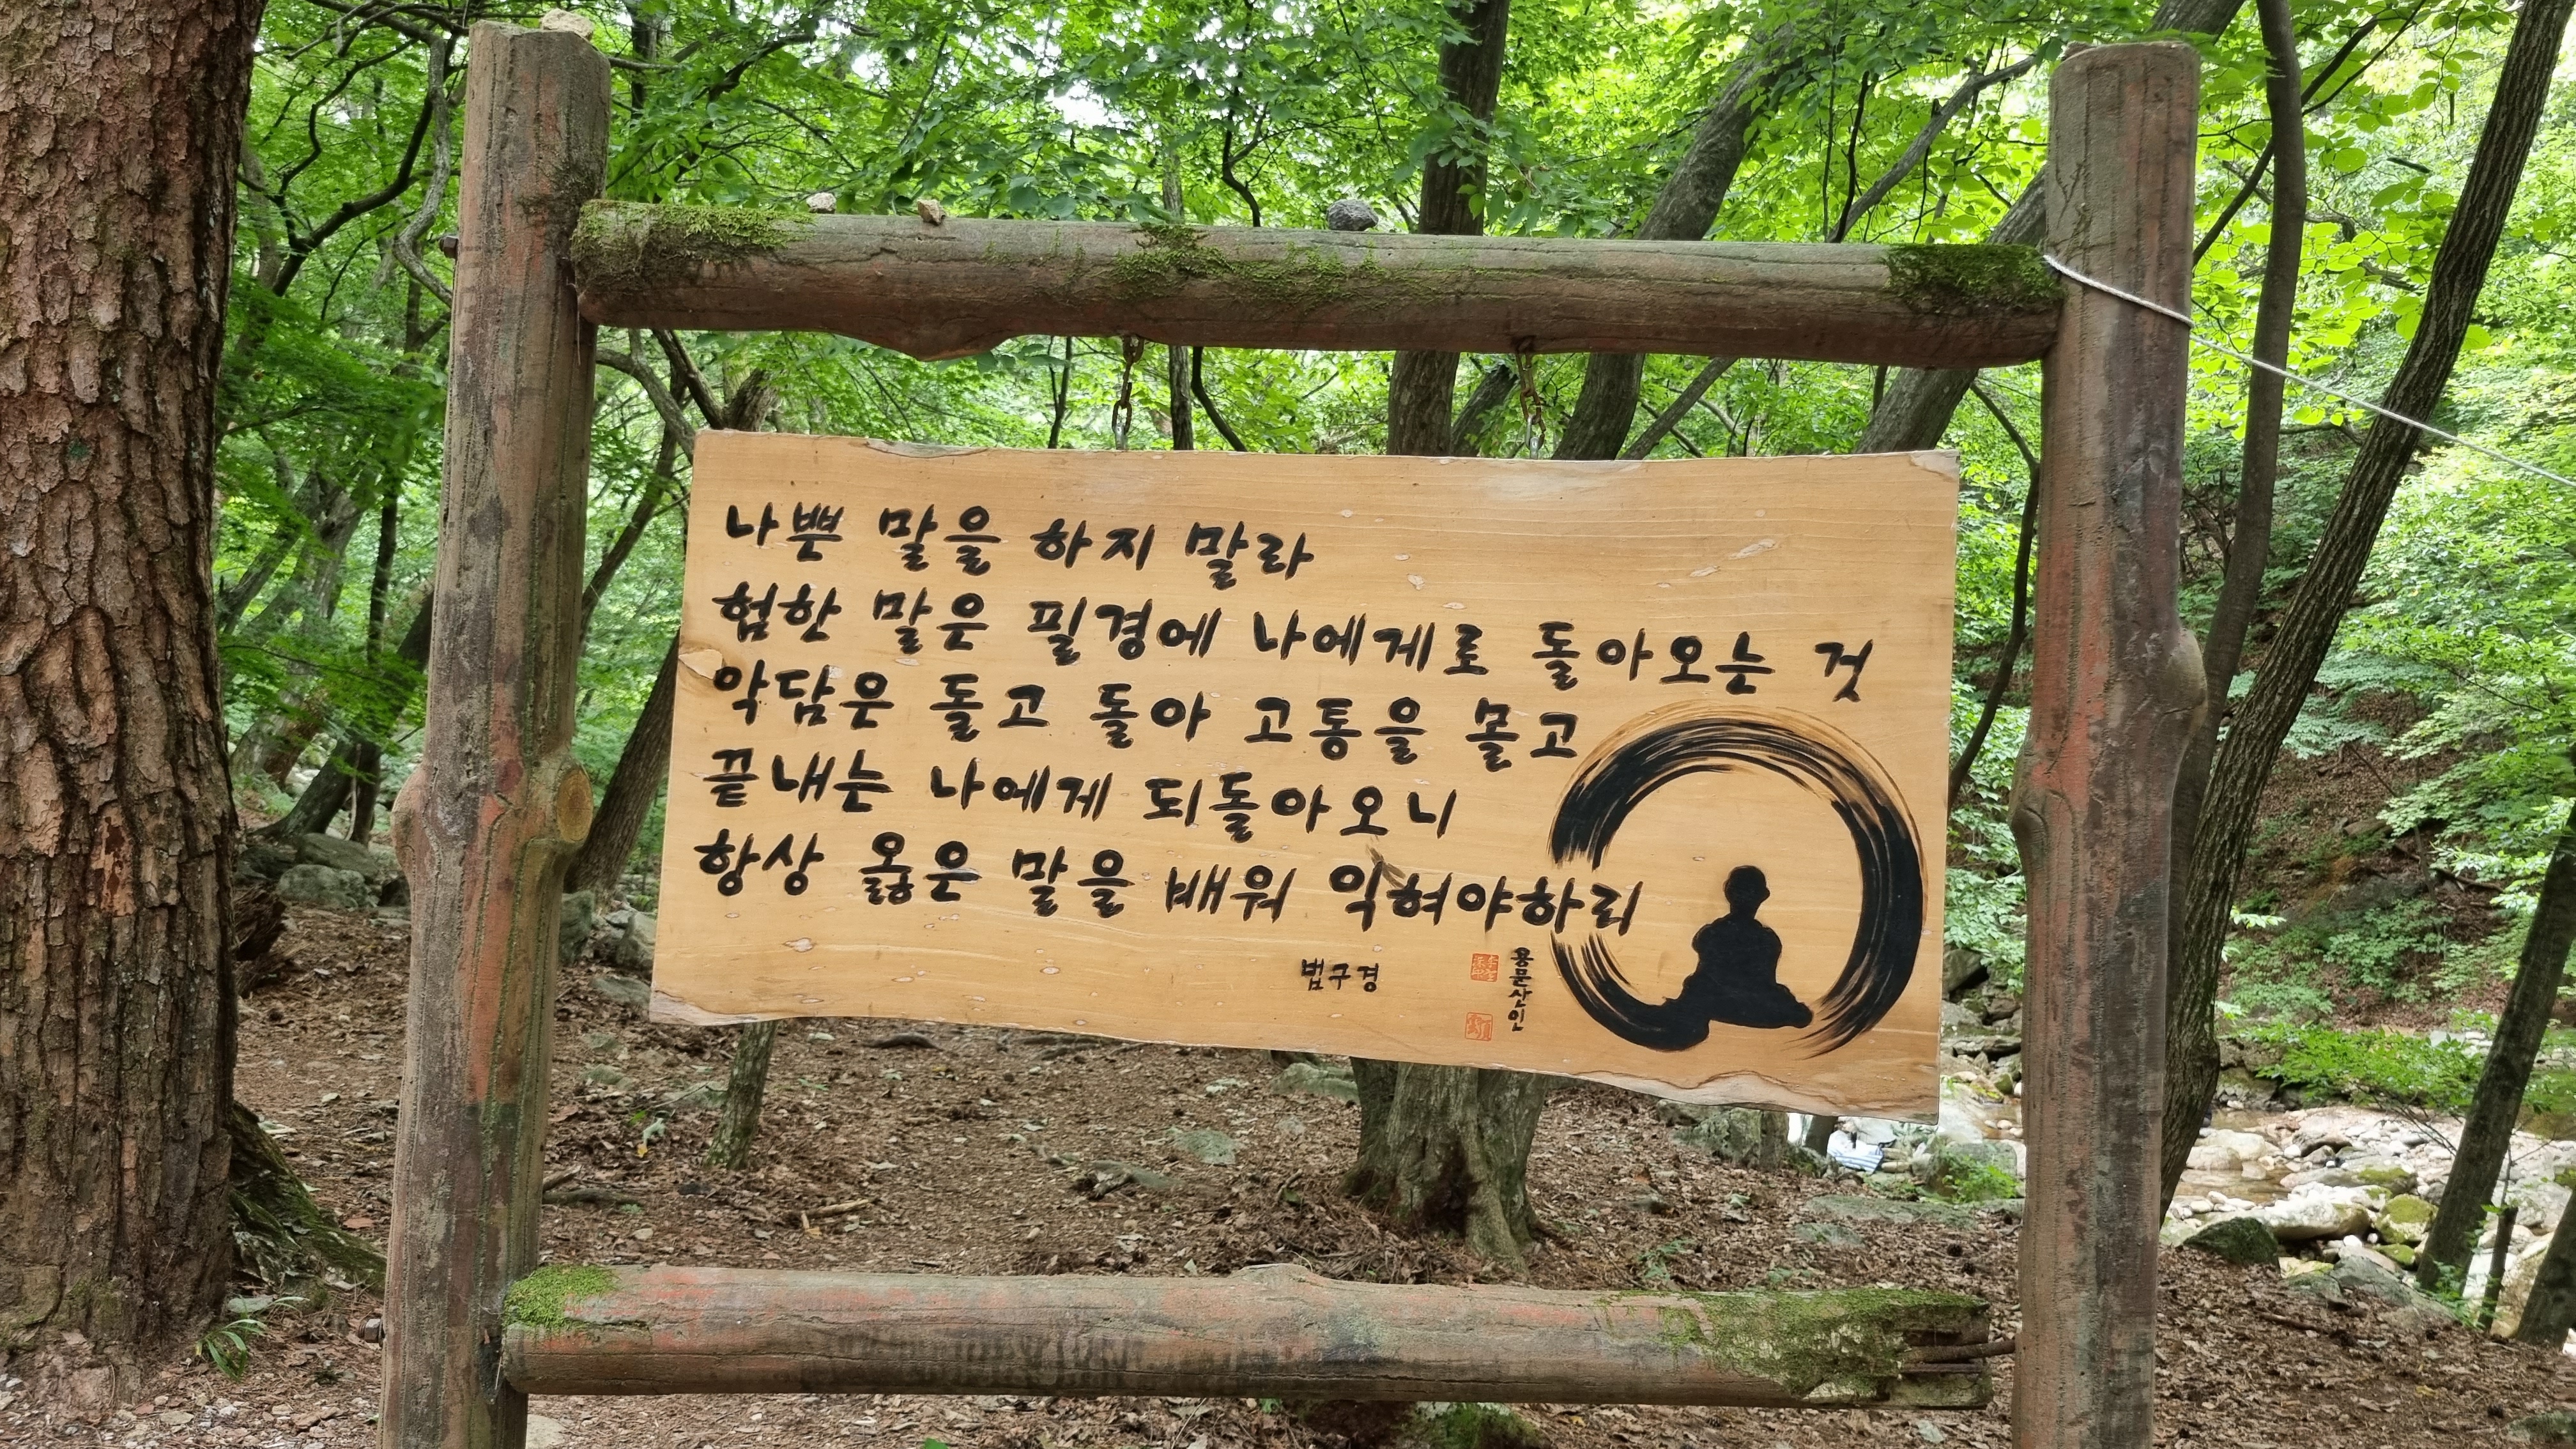 나쁜 말을 하지 말라
험한 말은 필경에 나에게로 돌아오는 것
악담은 돌고 돌아 고통을 몰고
끝내는 나에게 되돌아오니
항상 옳은 말을 배워 익혀야하리
법구경
용문산인